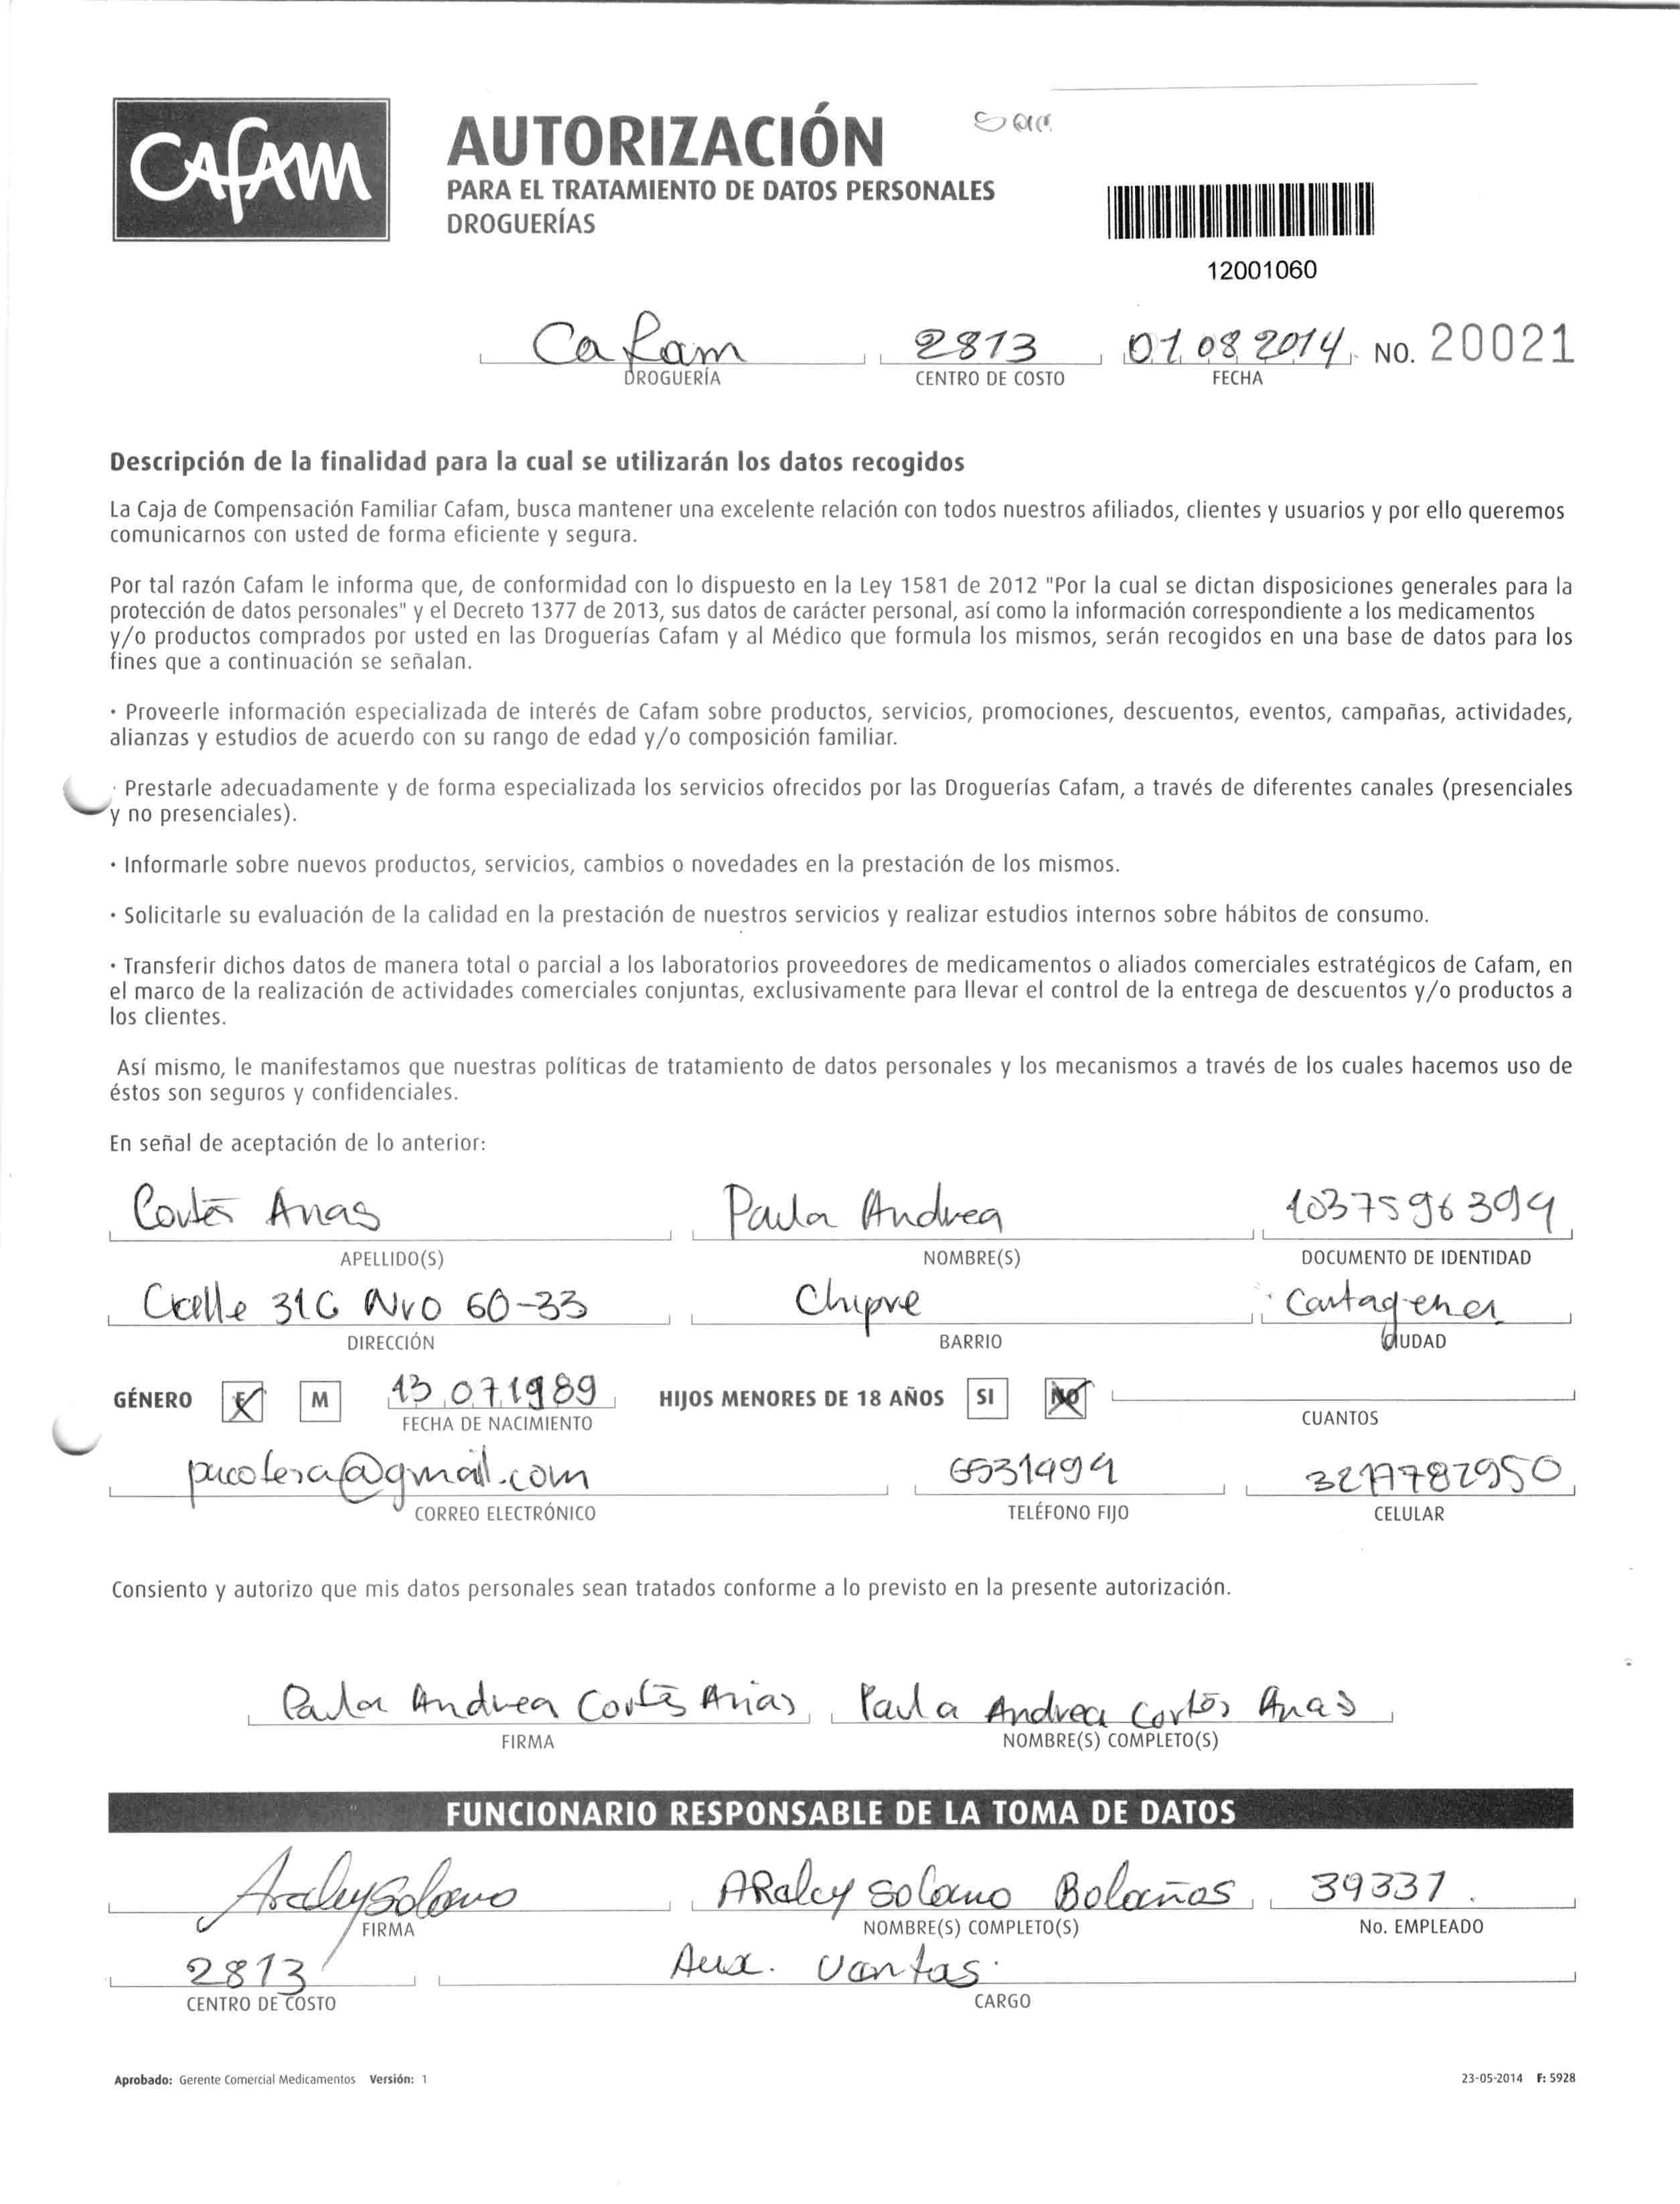 CAFAM
AUTORIZACIÓN
PARA EL TRATAMIENTO DE DATOS PERSONALES
DROGUERÍAS
12001060
Cafam 2813 01 08 2014 NO. 20021
DROGUERÍA CENTRO DE COSTO FECHA
Descripción de la finalidad para la cual se utilizarán los datos recogidos
La Caja de Compensación Familiar Cafam, busca mantener una excelente relación con todos nuestros afiliados, clientes y usuarios y por ello queremos
comunicarnos con usted de forma eficiente y segura.
Por tal razón Cafam le informa que, de conformidad con lo dispuesto en la Ley 1581 de 2012 "Por la cual se dictan disposiciones generales para la
protección de datos personales" y el Decreto 1377 de 2013, sus datos de carácter personal, así como la información correspondiente a los medicamentos
y/o productos comprados por usted en las Droguerías Cafam y al Médico que formula los mismos, serán recogidos en una base de datos para los
fines que a continuación se señalan.
· Proveerle información especializada de interés de Cafam sobre productos, servicios, promociones, descuentos, eventos, campañas, actividades,
alianzas y estudios de acuerdo con su rango de edad y/o composición familiar.
· Prestarle adecuadamente y de forma especializada los servicios ofrecidos por las Droguerías Cafam, a través de diferentes canales (presenciales
y no presenciales).
· Informarle sobre nuevos productos, servicios, cambios o novedades en la prestación de los mismos.
· Solicitarle su evaluación de la calidad en la prestación de nuestros servicios y realizar estudios internos sobre hábitos de consumo.
· Transferir dichos datos de manera total o parcial a los laboratorios proveedores de medicamentos o aliados comerciales estratégicos de Cafam, en
el marco de la realización de actividades comerciales conjuntas, exclusivamente para llevar el control de la entrega de descuentos y/o productos a
los clientes.
Así mismo, le manifestamos que nuestras políticas de tratamiento de datos personales y los mecanismos a través de los cuales hacemos uso de
éstos son seguros y confidenciales.
En señal de aceptación de lo anterior:
Cortés Arias Paula Andrea 1037596394
APELLIDO(S) NOMBRE(S) DOCUMENTO DE IDENTIDAD
Calle 31C Nro 60-33 Chipre Cartagena
DIRECCIÓN BARRIO CIUDAD
GÉNERO F M 13 07 1989 HIJOS MENORES DE 18 AÑOS SI NO
FECHA DE NACIMIENTO CUANTOS
6531494
CORREO ELECTRÓNICO TELÉFONO FIJO CELULAR
Consiento y autorizo que mis datos personales sean tratados conforme a lo previsto en la presente autorización.
Paula Andrea Cortés Arias Paula Andrea Cortés Arias
FIRMA NOMBRE(S) COMPLETO(S)
FUNCIONARIO RESPONSABLE DE LA TOMA DE DATOS
Aralcy Solano ARalcy Solano Bolaños 39337
FIRMA NOMBRE(S) COMPLETO(S) No. EMPLEADO
2813 Aux. Ventas.
CENTRO DE COSTO CARGO
Aprobado: Gerente Comercial Medicamentos Versión: 1 23-05-2014 F: 5928